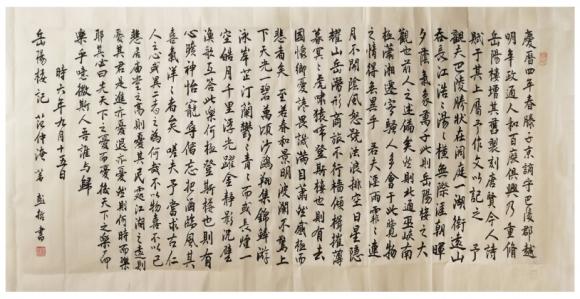 慶曆四年春滕子京謫守巴陵郡越
明年政通人和百廢俱興乃重脩
岳陽樓增其舊制刻唐賢今人詩
賦于其上屬予作文以記之 予
觀夫巴陵勝狀在洞庭一湖銜遠山
吞長江浩浩湯湯橫無際涯朝暉
夕陰氣象萬千此則岳陽樓之大
觀也前人之述備矣然則北通巫峽南
極瀟湘遷客騷人多會于此覽物
之情得無異乎 若夫霪雨霏霏連
月不開陰風怒號濁浪排空日星隱
耀山岳潛形商旅不行檣傾楫摧薄
暮冥冥虎嘯猿啼登斯樓也則有去
國懷鄉憂讒畏譏滿目蕭然感極而
悲者矣 至若春和景明波瀾不驚上
下天光一碧萬頃沙鷗翔集錦鱗游
泳岸芷汀蘭郁郁青青而或長煙一
空皓月千里浮光躍金靜影沉璧
漁歌互答此樂何極登斯樓也則有
心曠神怡寵辱偕忘把酒臨風其
喜氣洋洋者矣 嗟夫予嘗求古仁
人之心或異二者之為何哉不以物喜不以己
悲居廟堂之高則憂其民處江湖之遠則
憂其君是進亦憂退亦憂然則何時而樂
耶其必曰先天下之憂而憂後天下之樂而
樂乎噫微斯人吾誰與歸
時六年九月十五日
岳陽樓記 范仲淹 書